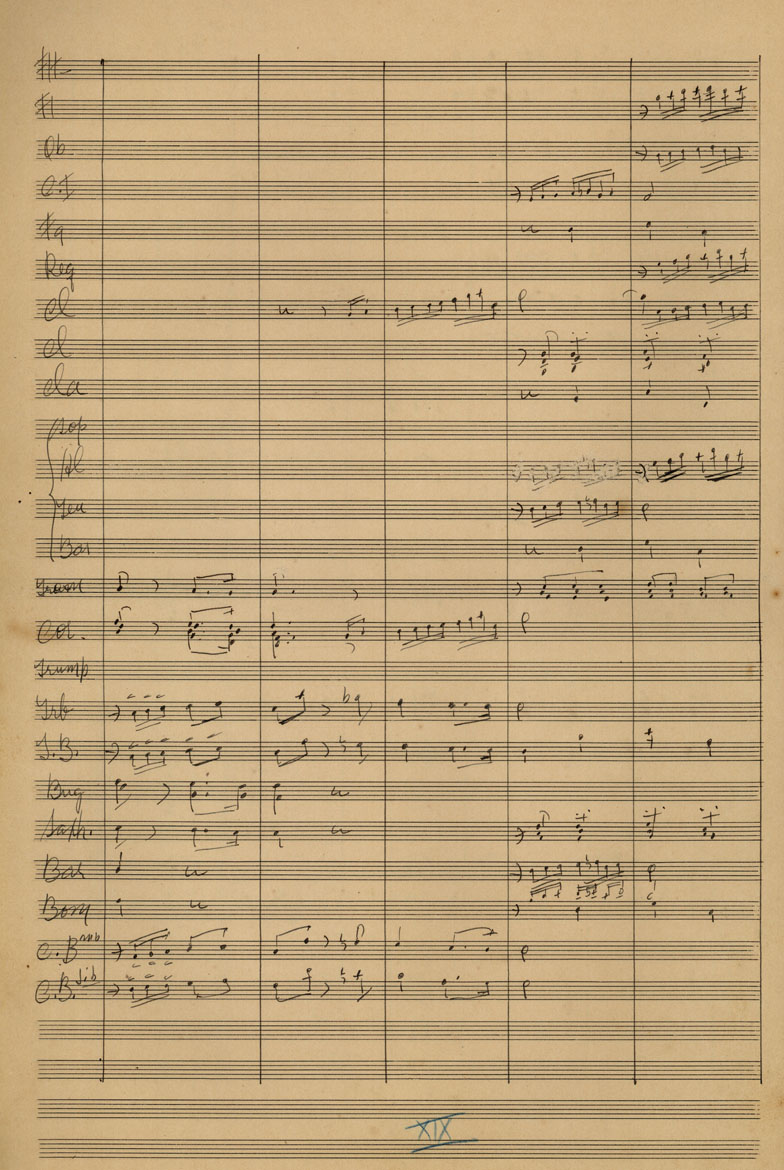 Fl
Ob
C.I
Fg
Req
Cl
Cl
Cla
Sop
Al
Ten
Bar
Trom
Cor.
Trump
Trb
T.B.
Bug
Saxh.
Bar
Bom
C.B mib
C.B. sib
XIX